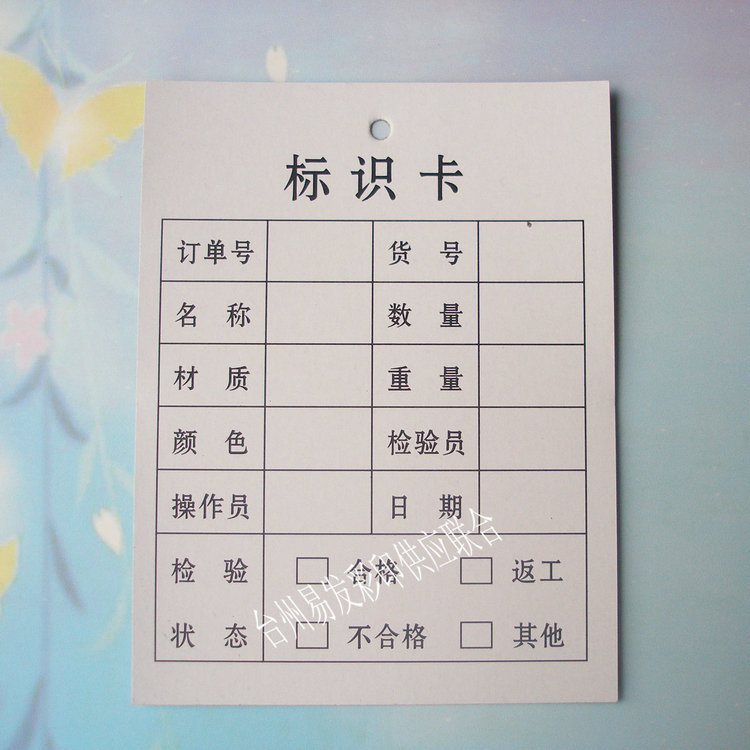 标识卡
订单号 货号
名称 数量
材质 重量
颜色 检验员
操作员 日期
检验 □ 合格 □ 返工
状态 □ 不合格 □ 其他
台州易发彩印供应联合